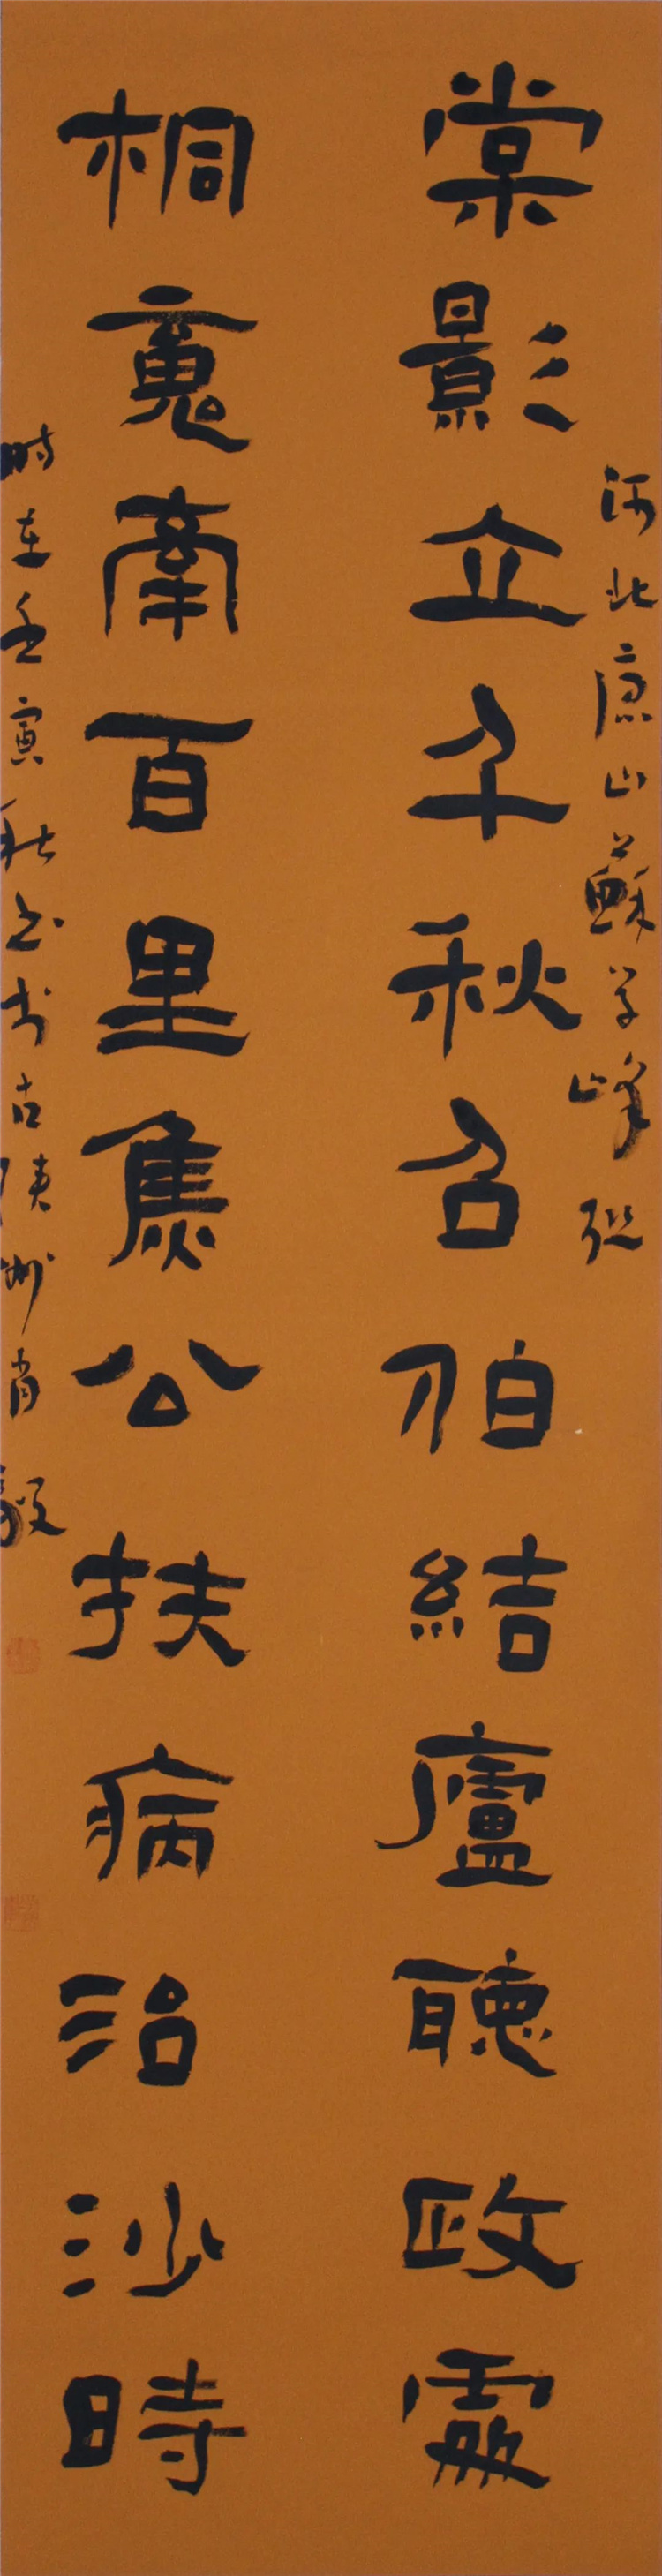 河北唐山蘇学峰联
棠影立千秋召伯結廬聽政處
桐魂牽百里焦公扶病治沙時
時在壬寅秋书于古陕州肖毅